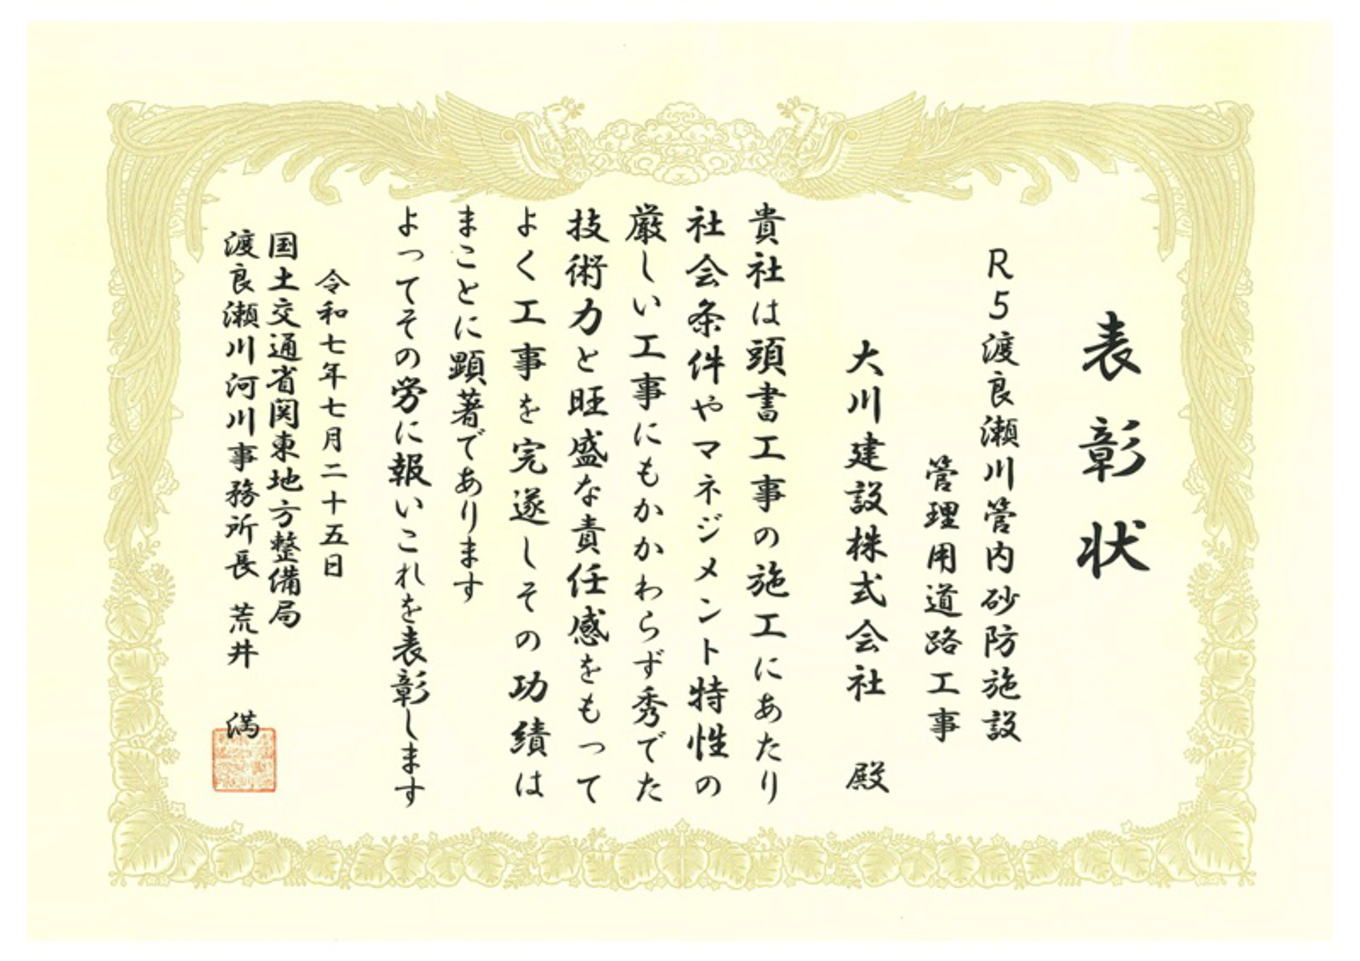 表彰状
R5渡良瀬川管内砂防施設
管理用道路工事
大川建設株式会社 殿
貴社は頭書工事の施工にあたり
社会条件やマネジメント特性の
厳しい工事にもかかわらず秀でた
技術力と旺盛な責任感をもって
よく工事を完遂しその功績は
まことに顕著であります
よってその労に報いこれを表彰します
令和七年七月二十五日
国土交通省関東地方整備局
渡良瀬川河川事務所長 荒井 満